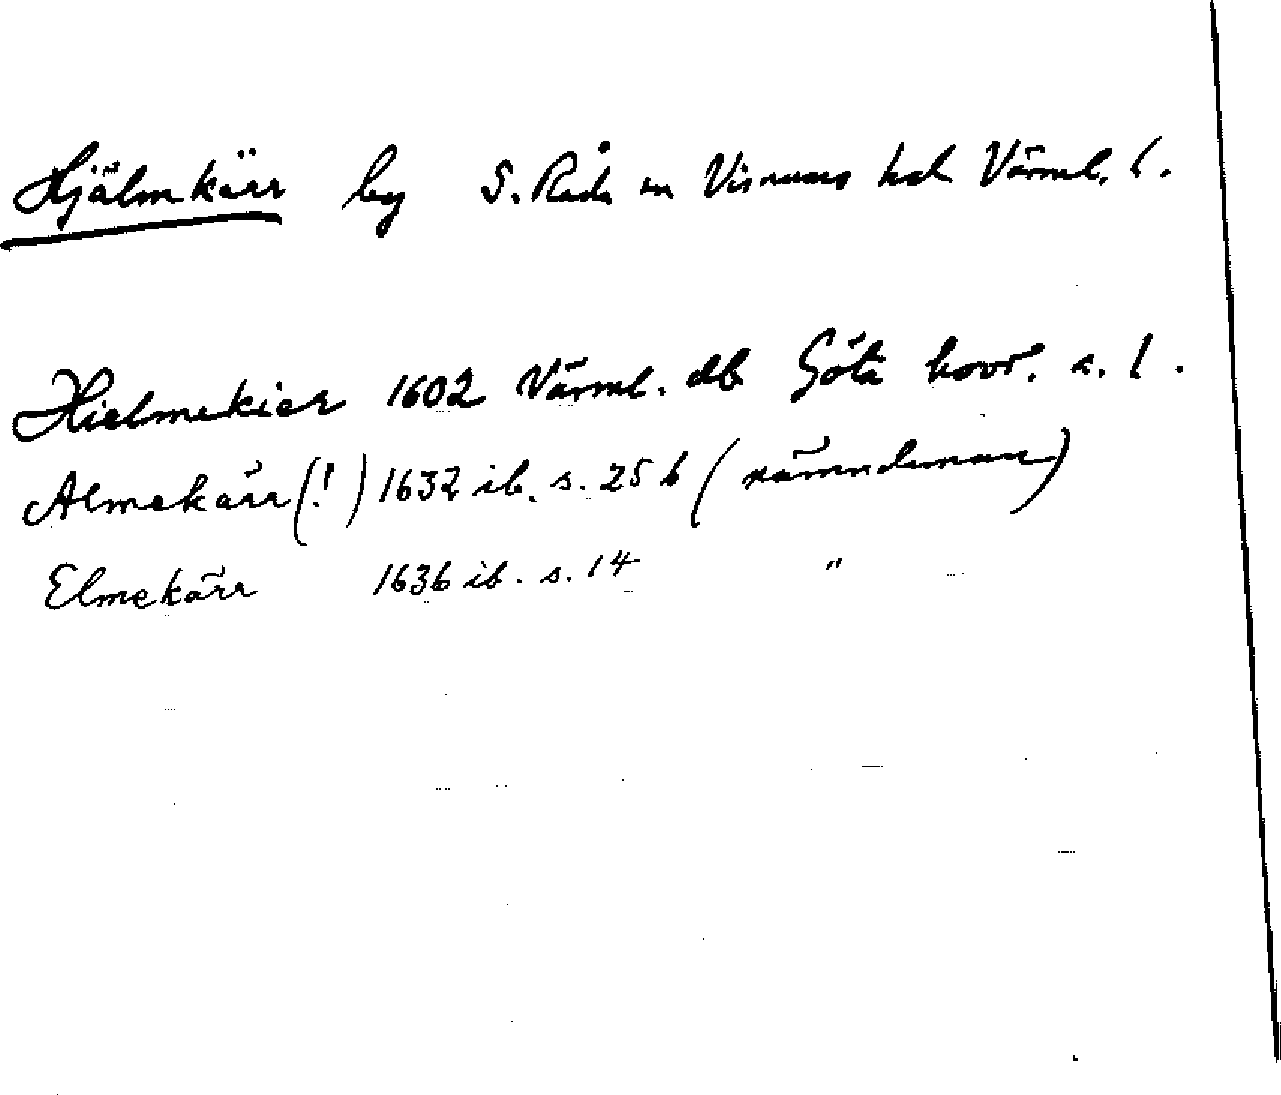 Hjälmkärr by S. Råda sn Visnums hd Värml. l.
Hielmekier 1602 Värml. db Göta hovr. s. 1.
Almekärr (!) 1632 ib. s. 25 b (nämndeman)
Elmekärr 1636 ib. s. 14 "